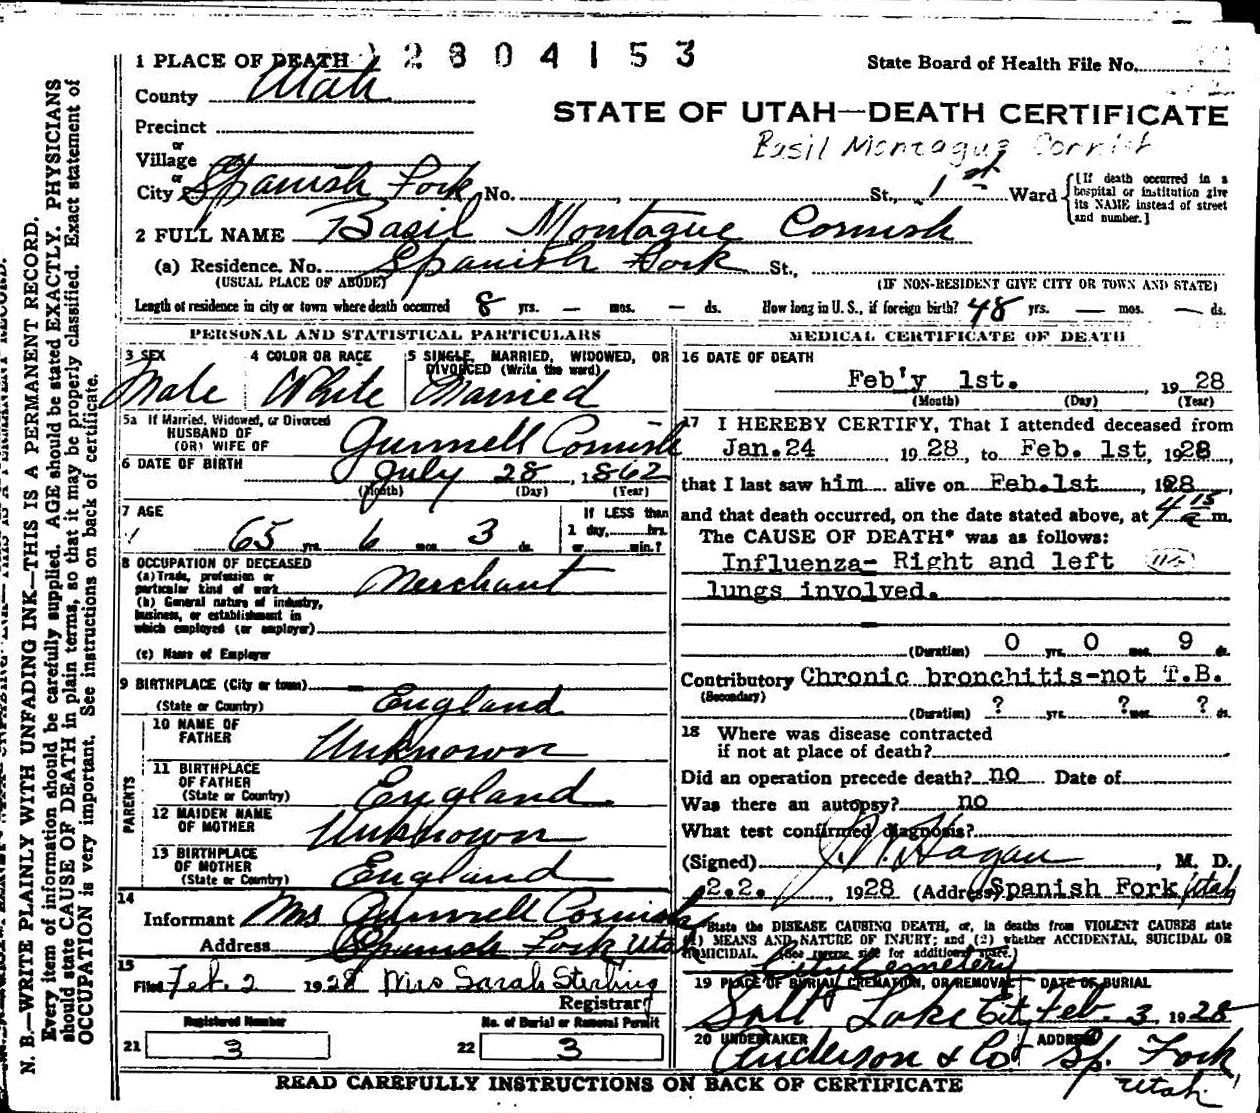 1 PLACE OF DEATH 2804153
State Board of Health File No.
County Utah
STATE OF UTAH—DEATH CERTIFICATE
Precinct
Basil Montague Cornish
or
Village
or
City Spanish Fork No. St., 1st Ward
[If death occurred in a hospital or institution give its NAME instead of street and number.]
2 FULL NAME Basil Montague Cornish
(a) Residence. No. Spanish Fork St.,
(USUAL PLACE OF ABODE) (IF NON-RESIDENT GIVE CITY OR TOWN AND STATE)
Length of residence in city or town where death occurred 8 yrs. — mos. — ds. How long in U. S., if foreign birth? 48 yrs. — mos. — ds.
PERSONAL AND STATISTICAL PARTICULARS
3 SEX Male
4 COLOR OR RACE White
5 SINGLE, MARRIED, WIDOWED, OR DIVORCED (Write the word) Married
5a If Married, Widowed, or Divorced
HUSBAND OF
(OR) WIFE OF Gunnell Cornish
6 DATE OF BIRTH July 28, 1862
(Month) (Day) (Year)
7 AGE 65 yrs. 6 mos. 3 ds.
If LESS than 1 day, hrs. or min.?
8 OCCUPATION OF DECEASED
(a) Trade, profession or particular kind of work Merchant
(b) General nature of industry, business, or establishment in which employed (or employer)
(c) Name of Employer
9 BIRTHPLACE (City or town)
(State or Country) England
PARENTS
10 NAME OF FATHER Unknown
11 BIRTHPLACE OF FATHER (State or Country) England
12 MAIDEN NAME OF MOTHER Unknown
13 BIRTHPLACE OF MOTHER (State or Country) England
14
Informant Mrs Gunnell Cornish
Address Spanish Fork, Utah
15
Filed Feb. 2 1928 Mrs Sarah Sterling
Registrar
Registered Number
21 3
No. of Burial or Removal Permit
22 3
MEDICAL CERTIFICATE OF DEATH
16 DATE OF DEATH
Feb'y 1st. 1928
(Month) (Day) (Year)
17 I HEREBY CERTIFY, That I attended deceased from
Jan.24 1928, to Feb. 1st, 1928,
that I last saw him alive on Feb.1st, 1928
and that death occurred, on the date stated above, at 4 15 a m.
The CAUSE OF DEATH* was as follows:
Influenza- Right and left
lungs involved.
(Duration) 0 yrs. 0 mos. 9 ds.
Contributory Chronic bronchitis-not T.B.
(Secondary)
(Duration) ? yrs. ? mos. ? ds.
18 Where was disease contracted
if not at place of death?
Did an operation precede death? no Date of
Was there an autopsy? no
What test confirmed diagnosis?
(Signed) J. W. Hagan, M. D.
2.2. 1928 (Address) Spanish Fork, Utah
*State the DISEASE CAUSING DEATH, or, in deaths from VIOLENT CAUSES state
(1) MEANS AND NATURE OF INJURY; and (2) whether ACCIDENTAL, SUICIDAL OR
HOMICIDAL. (See reverse side for additional space.)
City Cemetery
19 PLACE OF BURIAL, CREMATION, OR REMOVAL DATE OF BURIAL
Salt Lake City Feb. 3 1928
20 UNDERTAKER ADDRESS
Anderson & Co Sp. Fork
Utah
READ CAREFULLY INSTRUCTIONS ON BACK OF CERTIFICATE
N. B.—WRITE PLAINLY WITH UNFADING INK—THIS IS A PERMANENT RECORD.
Every item of information should be carefully supplied. AGE should be stated EXACTLY. PHYSICIANS
should state CAUSE OF DEATH in plain terms, so that it may be properly classified. Exact statement of
OCCUPATION is very important. See instructions on back of certificate.